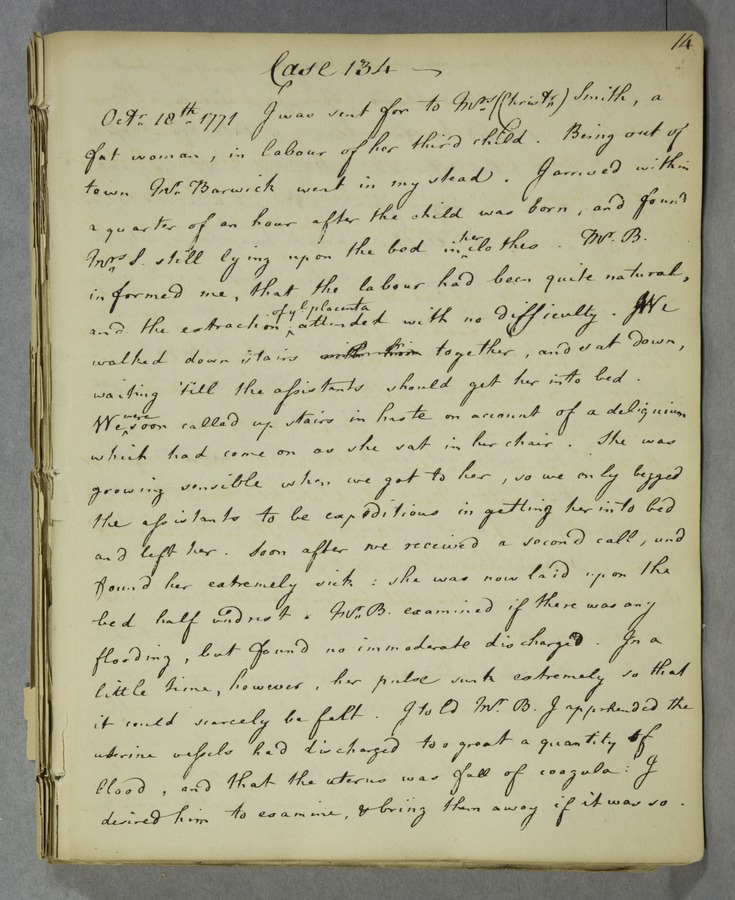 14
Case 134 —
Octr. 18th. 1771 I was sent for to Mrs. (Christr.) Smith, a
fat woman, in labour of her third child. Being out of
town Mr. Barwick went in my stead. I arrived within
a quarter of an hour after the child was born, and found
Mrs. S. still lying upon the bed in her clothes. Mr. B.
informed me, that the labour had been quite natural,
and the extraction of ye placenta attended with no difficulty. We
walked down stairs with him together, and sat down,
waiting 'till the assistants should get her into bed.
We were soon called up stairs in haste on account of a deliquium
which had come on as she sat in her chair. She was
growing sensible when we got to her, so we only begged
the assistants to be expeditious in getting her into bed
and left her. Soon after we received a second call, and
found her extremely sick: she was now laid upon the
bed half undrest. Mr. B. examined if there was any
flooding, but found no immoderate discharge. In a
little time, however, her pulse sunk extremely so that
it could scarcely be felt. I told Mr. B. I apprehended the
uterine vessels had discharged too great a quantity of
blood, and that the uterus was full of coagula: I
desired him to examine, & bring them away if it was so.